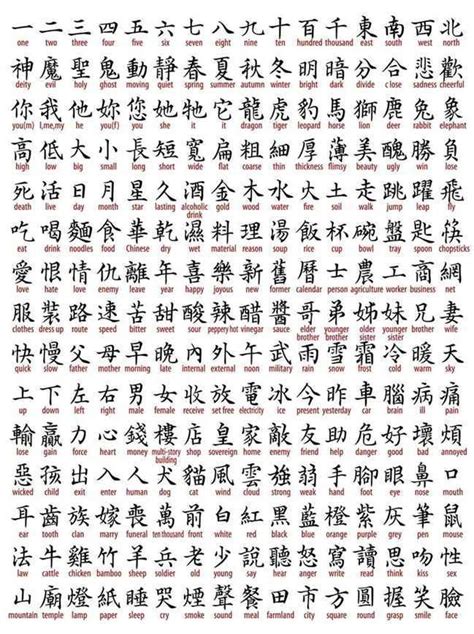 一 二 三 四 五 六 七 八 九 十 百 千 東 南 西 北
one two three four five six seven eight nine ten hundred thousand east south west north
神 魔 聖 鬼 動 靜 春 夏 秋 冬 明 暗 分 合 悲 歡
deity evil holy ghost moving quiet spring summer autumn winter bright dark divide close sadness cheerful
你 我 他 妳 您 她 牠 它 龍 虎 豹 馬 獅 鹿 兔 象
you(m) I,me,my he you(f) you she it it dragon tiger leopard horse lion deer rabbit elephant
高 低 大 小 長 短 寬 扁 粗 細 厚 薄 美 醜 勝 負
high low big small long short wide flat coarse thin thickness flimsy beauty ugly win lose
死 活 日 月 星 久 酒 金 木 水 火 土 走 跳 躍 飛
death live day month star lasting alcoholic drink gold wood water fire soil walk jump leap fly
吃 喝 麵 食 華 乾 濕 料 理 湯 飯 杯 碗 盤 匙 筷
eat drink noodles food Chinese dry wet material reason soup rice cup bowl tray spoon chopsticks
愛 恨 情 仇 離 年 喜 樂 新 舊 曆 士 農 工 商 網
love hate love enemy leave year happy joyous new former calendar person agriculture worker business net
服 裝 路 速 苦 甜 酸 辣 醋 醬 哥 弟 姊 妹 兄 妻
clothes dress up route speed bitter sweet sour peppery hot vinegar sauce elder brother younger brother older sister younger sister brother wife
快 慢 父 母 早 晚 內 外 午 武 雨 雪 霜 冷 暖 天
quick slow father mother morning late internal external noon military rain snow frost cold warm sky
上 下 左 右 男 女 收 放 電 冰 今 昨 車 腦 病 痛
up down left right male female receive set free electricity ice present yesterday car brain ill pain
輸 贏 力 心 錢 樓 店 皇 家 敵 友 助 危 好 壞 煩
lose gain force heart money multi-story building shop sovereign home enemy friend help danger good bad annoyed
惡 孩 出 入 人 犬 貓 風 雲 強 弱 手 腳 眼 鼻 口
wicked child exit enter human dog cat wind cloud strong weak hand foot eye nose mouth
耳 齒 族 嫁 喪 萬 前 白 紅 黑 藍 橙 紫 灰 筆 鼠
ear tooth clan marry funeral ten thousand front white red black blue orange purple grey pen mouse
法 牛 雞 竹 羊 兵 老 少 說 聽 怒 寫 讀 思 吻 性
law cattle chicken bamboo sheep soldier old young say hear angry write read think kiss sex
山 廟 燈 紙 睡 哭 煙 聲 餐 田 市 方 圓 握 笑 臉
mountain temple lamp paper sleep cry smoke sound meal farmland city square round grasp smile face